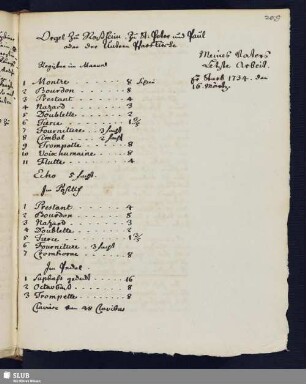 Orgel Zu Roßheim Zu St. Peter und Paul
oder der Untern Pfarrkirch
Meines Vatters
Letzte Arbeit.
Starb 1734. den
16 Mertz.
Register im Manual
1 Montre 8
2 Bourdon 8
3 Prestant 4
4 Nazard 3
5 Doublette 2
6 Tierce 1 3/5
7 Fourniture 3
8 Cimbal 2
9 Trompette 8
10 Voix humaine 8
11 Flutte 4
Echo 5
Im Positif
1 Prestant 4
2 Bourdon 8
3 Nazard 3
4 Doublette 2
5 Tierce 1 3/5
6 Fourniture 3
7 Cromhorne 8
Im Pedal
1 Subbass gedeckt 16
2 Octavbass 8
3 Trompette 8
Clavier von 48 Clavibus
SLUB